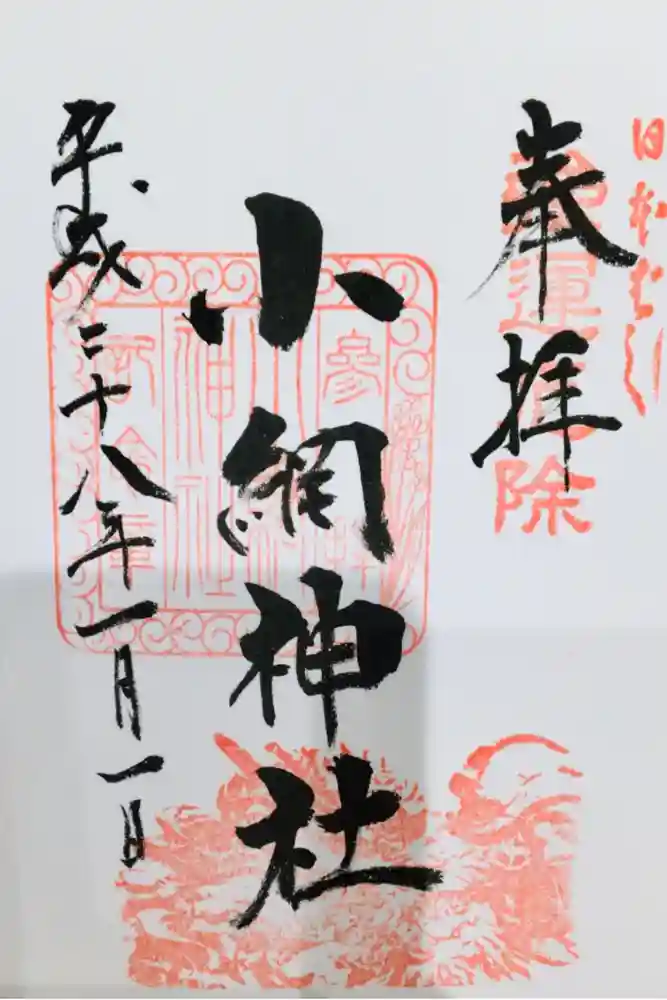 日本ばし
奉拝
強運厄除
小網神社
平成二十八年一月一日